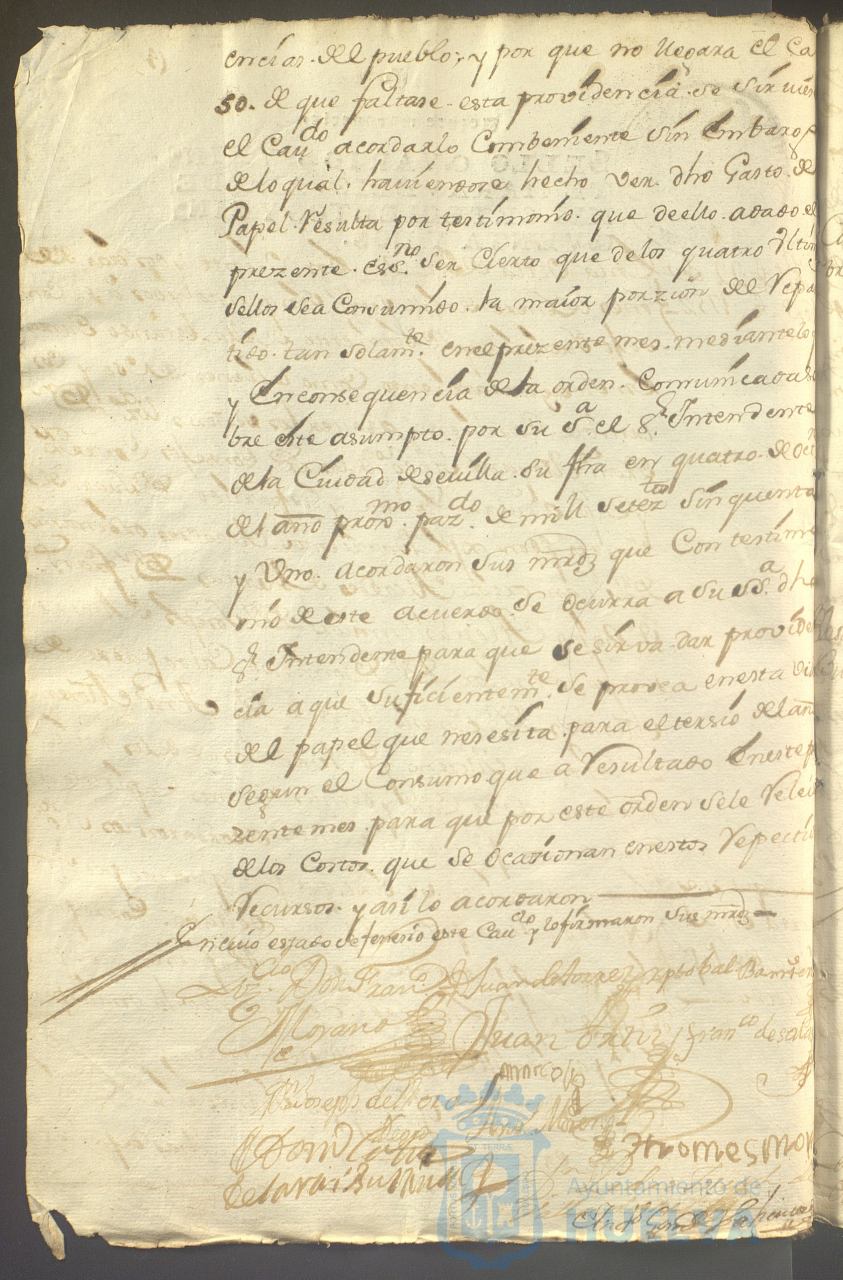 encias. del pueblo; y por que no llegara el Ca
so. de que faltase. esta providencia. se sirvier
el Cau.do acordarlo Combeniente Sin Embargo
de lo qual. haviendose hecho ver. dho Gasto. de
Papel. Resulta por testimonio. que de ello. a dado el
prezente. ess.no Ser Cierto que de los quatro Ultim
sellos sea Consumido. la maior porzion del Repa
tido. tan solam.te en el prezente mes. mediante lo
y En consequencia de la orden. Comunicada s
bre este asumpto. por su S.a el S.r Intendente
de la Ciudad de sevilla. su fha en quatro. de Oct
del año proximo. paz.do de mill setez.tos Sinquenta
y Uno. acordaron sus mrds que Con testimo
nio de este acuerdo. se ocurra a su S.a dho
S.r Intendente para que se sirva dar provide
cia a que suficientem.te se provea en esta vi
del papel que nesesita. para el tersio del añ
segun el Consumo que a Resultado En este p
zente mes. para que por este orden se le Relev
de los Costos. que se Ocasionan en estos Repecti
Recursos. y asi lo acordaron
En cuio estado se fenesio este Cau.do y lo firmaron sus mrds
Lz.do Don Fran.co Juan de torres
Morano Juan Ortiz Fran.co de
Joseph del
Marcos
Thomas Mor
Ayuntamiento de
HUELVA